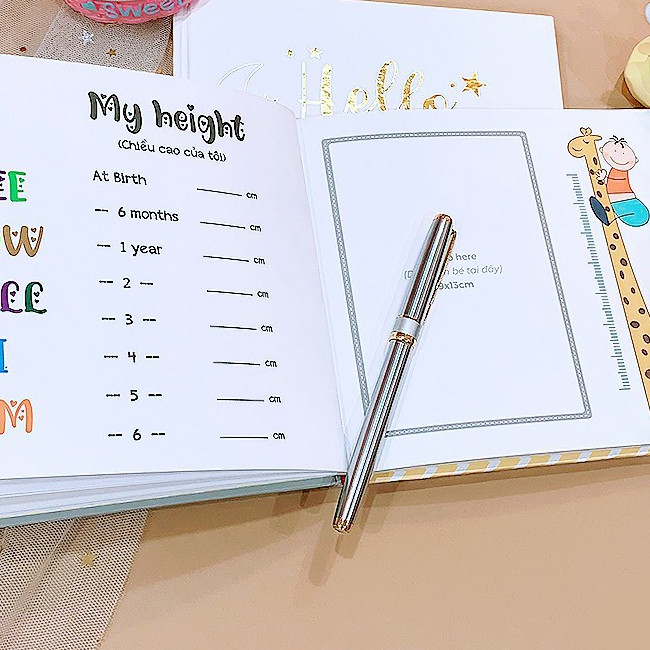 Sweet
Hello
My height
(Chiều cao của tôi)
At Birth cm
-- 6 months cm
-- 1 year cm
-- 2 -- cm
-- 3 -- cm
-- 4 -- cm
-- 5 -- cm
-- 6 -- cm
EE
OW
ALL
I
M
here
bé tại đây)
9x13cm